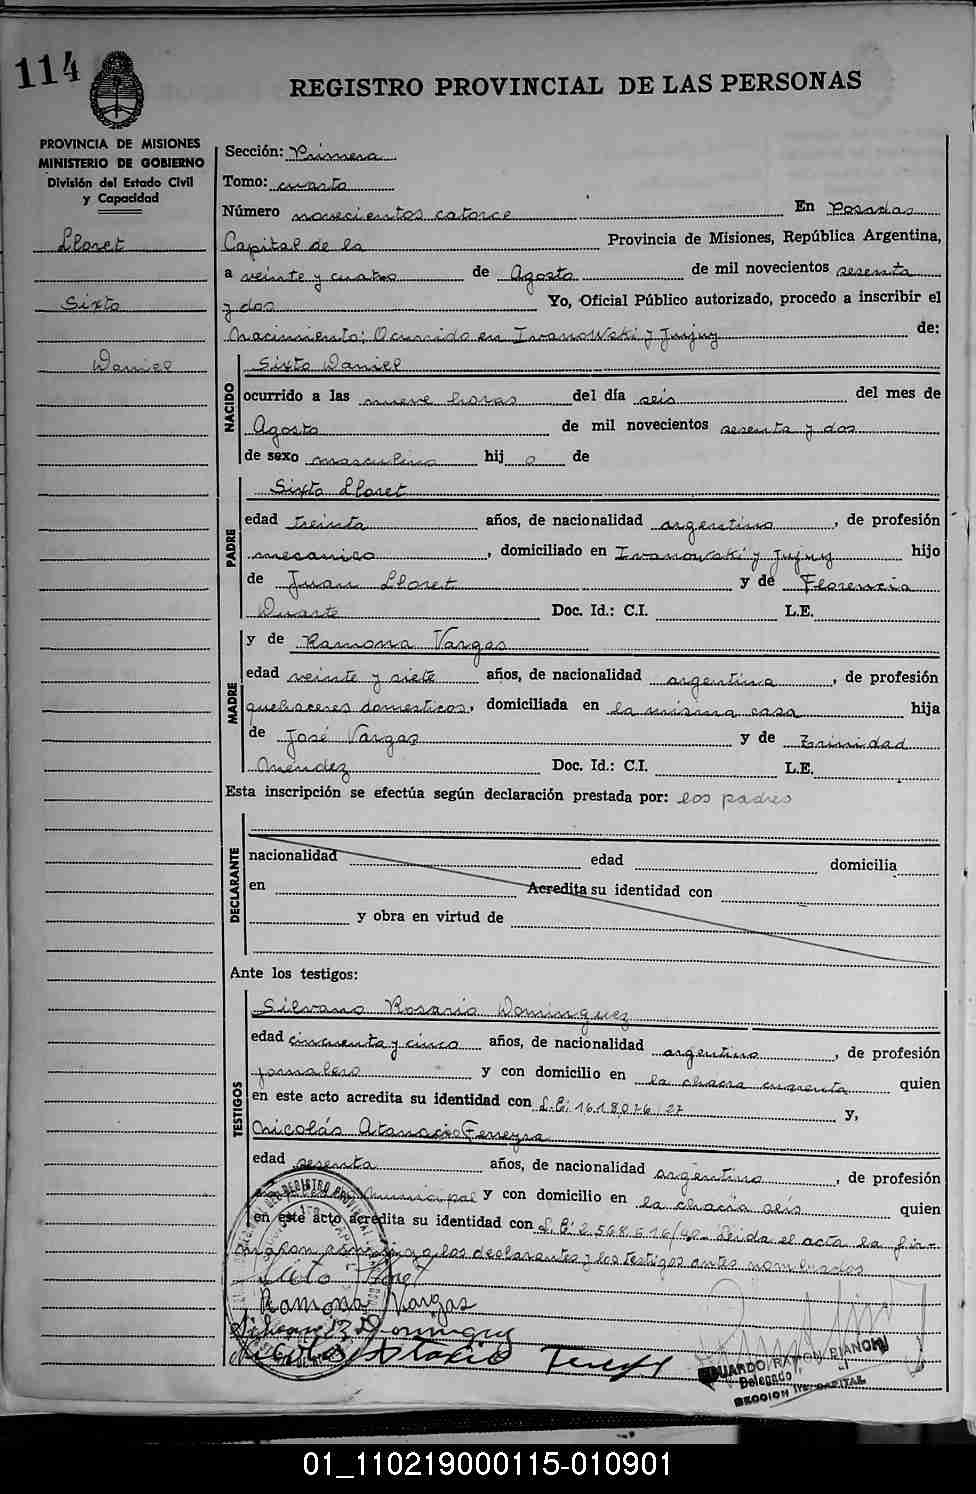 114
REGISTRO PROVINCIAL DE LAS PERSONAS
PROVINCIA DE MISIONES
MINISTERIO DE GOBIERNO
División del Estado Civil
y Capacidad
Lloret
Sixto
Daniel
Sección: Primera
Tomo: cuarto
Número novecientos catorce En Posadas
Capital de la Provincia de Misiones, República Argentina,
a veinte y cuatro de Agosto de mil novecientos sesenta
y dos Yo, Oficial Público autorizado, procedo a inscribir el
Nacimiento: Ocurrido en Iwanowski y Jujuy de:
NACIDO
Sixto Daniel
ocurrido a las nueve horas del día seis del mes de
Agosto de mil novecientos sesenta y dos
de sexo masculino hij o de
PADRE
Sixto Lloret
edad treinta años, de nacionalidad argentino, de profesión
mecanico, domiciliado en Iwanowski y Jujuy hijo
de Juan Lloret y de Florencia
Duarte Doc. Id.: C.I. L.E.
MADRE
y de Ramona Vargas
edad veinte y siete años, de nacionalidad argentina, de profesión
quehaceres domesticos, domiciliada en la misma casa hija
de José Vargas y de Trinidad
Mendez Doc. Id.: C.I. L.E.
Esta inscripción se efectúa según declaración prestada por: los padres
DECLARANTE
nacionalidad edad domicilia
en Acredita su identidad con
y obra en virtud de
Ante los testigos:
TESTIGOS
Silvano Rosario Dominguez
edad cincuenta y cinco años, de nacionalidad argentino, de profesión
jornalero y con domicilio en la chacra cuarenta quien
en este acto acredita su identidad con L.E: 1618076/27 y,
Nicolás Atanacio Ferreyra
edad sesenta años, de nacionalidad argentino, de profesión
Municipal y con domicilio en la chacra seis quien
en este acto acredita su identidad con L.E: 2.568.616/40 Leida el acta la fir-
man y los declarantes y los testigos antes nombrados
Sixto Lloret
Ramona Vargas
Silvano R Dominguez
Nicolas Atanacio Ferreyra
EDUARDO RAMON BIANCHI
Delegado
SECCION 1ra. CAPITAL
01_110219000115-010901